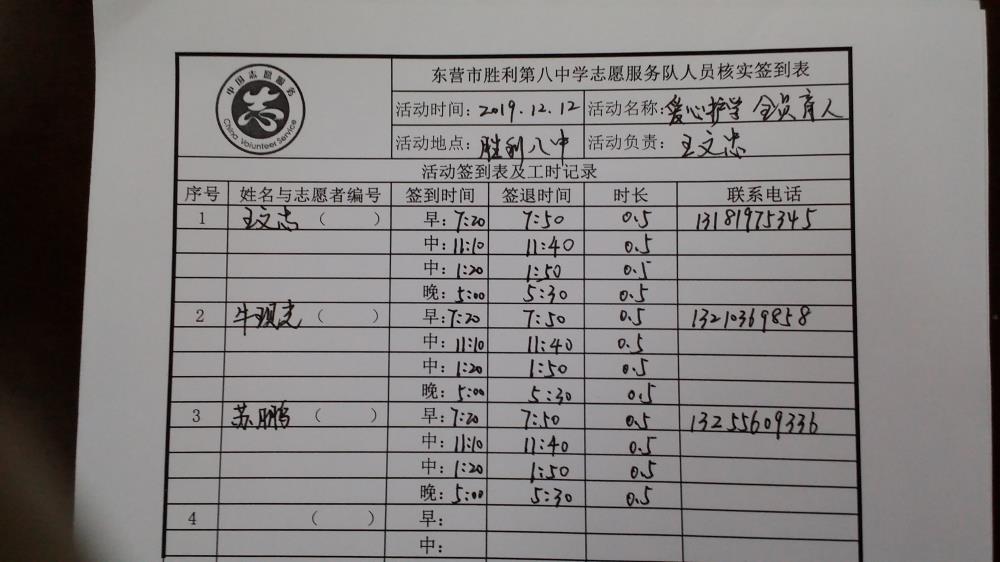 中国志愿服务
志
China Volunteer Service
东营市胜利第八中学志愿服务队人员核实签到表
活动时间：2019.12.12 活动名称：爱心护学 全员育人
活动地点：胜利八中 活动负责：王文忠
活动签到表及工时记录
序号 姓名与志愿者编号 签到时间 签退时间 时长 联系电话
1 王文忠（ ） 早：7:20 7:50 0.5 13181975345
中：11:10 11:40 0.5
中：1:20 1:50 0.5
晚：5:00 5:30 0.5
2 牛观光（ ） 早：7:20 7:50 0.5 13210369858
中：11:10 11:40 0.5
中：1:20 1:50 0.5
晚：5:00 5:30 0.5
3 苏鹏（ ） 早：7:20 7:50 0.5 13255609336
中：11:10 11:40 0.5
中：1:20 1:50 0.5
晚：5:00 5:30 0.5
4 （ ） 早：
中：